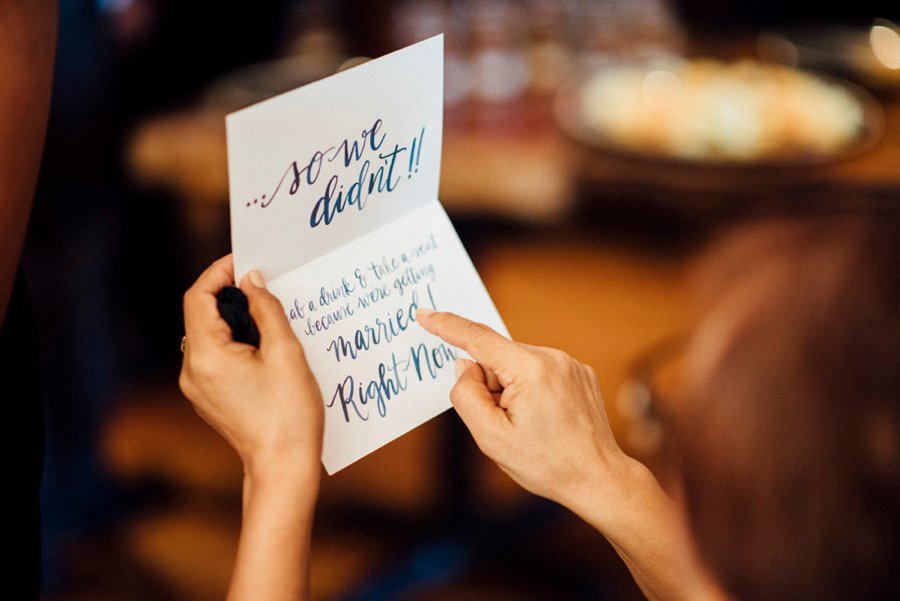 ...so we
didn't!!
ab a drink & take a seat
because we're getting
married!
Right Now